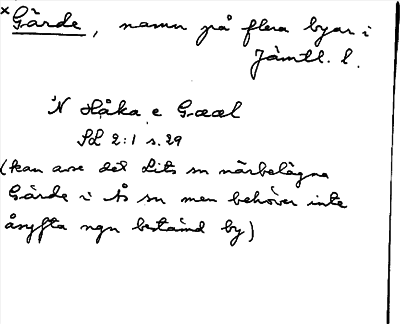 x Gärde, namn på flera byar i
Jämtl. l.
N Håka e Gææl
SL 2:1 s. 29
(kan avse det Lits sn närbelägna
Gärde i Ås sn men behöver inte
åsyfta ngn bestämd by)